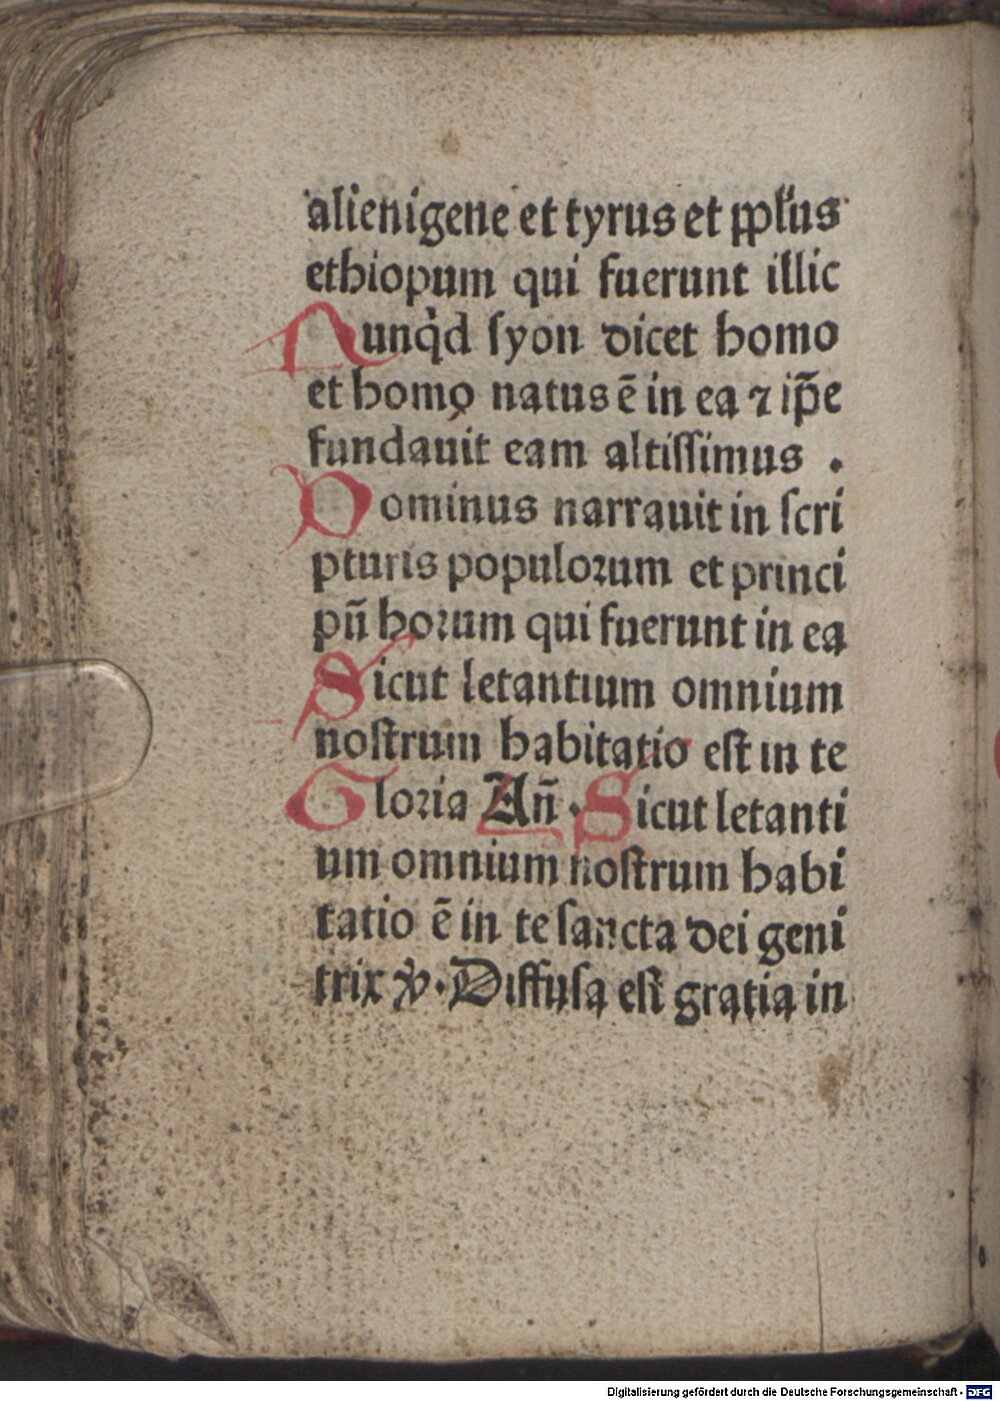 alienigene et tyrus et pplus
ethiopum qui fuerunt illic
Nunqd syon dicet homo
et homo natus ē in ea ⁊ ip̄e
fundauit eam altissimus .
Dominus narrauit in scri
pturis populorum et princi
pū horum qui fuerunt in ea
Sicut letantium omnium
nostrum habitatio est in te
Gloria Añ · Sicut letanti
um omnium nostrum habi
tatio ē in te sancta dei geni
trix ℣ · Diffusa est gratia in
Digitalisierung gefördert durch die Deutsche Forschungsgemeinschaft - DFG